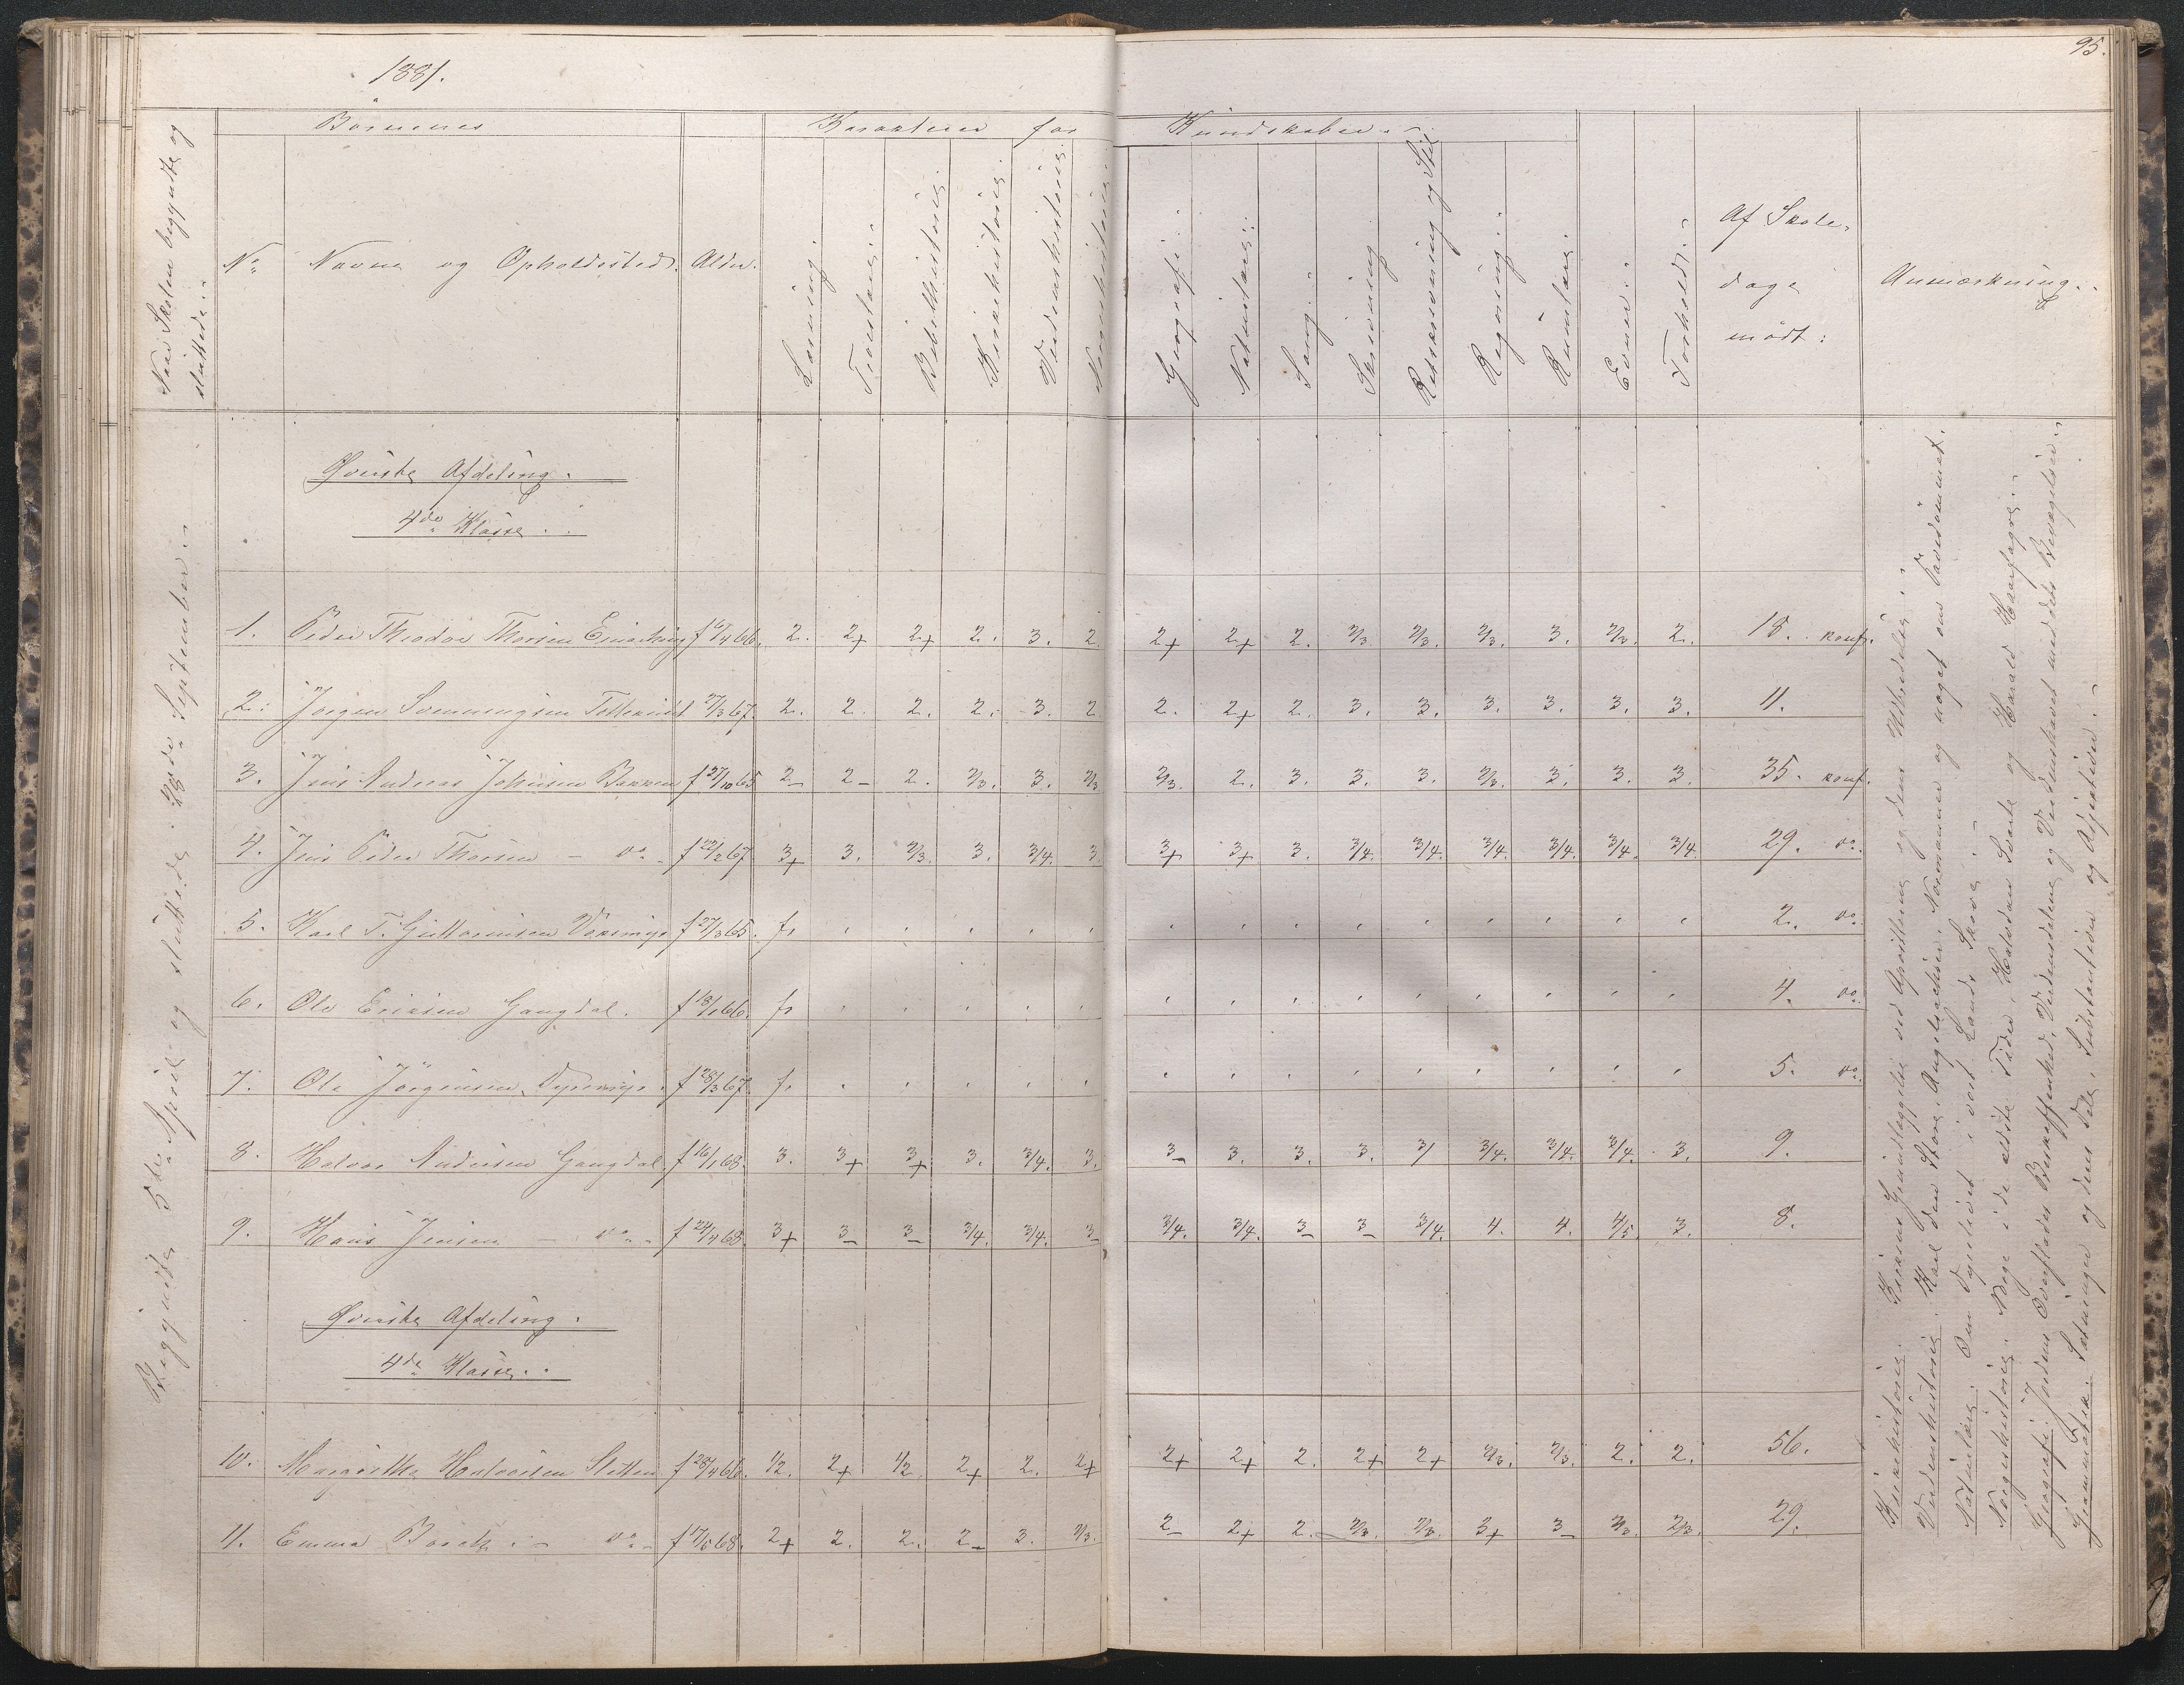 1881.
95.
Börnenes
Karakterer for
Kundskaber.
Naar Skolen begyndte og
sluttede.
No
Navne og Opholdssted.
Alder.
Læsning.
Troeslære.
Bibelhistorie.
Kirkehistorie.
Verdenshistorie.
Norgeshistorie.
Geografi.
Naturlære.
Sang.
Skrivning
Retskrivning og Stil
Regning.
Rumlære.
Evner.
Forhold.
Af Skole-
dage
mødt:
Anmærkning.
Begyndte 5te April og sluttede 28de September.
Øverste Afdeling.
4de Klasse.
1. Peder Theodor Thorsen f 6/4 66. 2. 2+ 2+ 2. 3. 2. 2+ 2+ 2. 2/3 2/3. 2/3. 3. 2/3. 2. 18. konf.
2. Jörgen Sveningsen f 27/3 67. 2. 2. 2. 2. 3. 2 2. 2+ 2. 3. 3. 3. 3. 3. 3. 11.
3. Jens Andreas Johnsen Bakken f 27/10 65 2- 2- 2. 2/3. 3. 2/3 2/3. 2. 3. 3. 3. 2/3. 3. 3. 3. 35. konf.
4. Jens Peder Thorsen - do - f 22/2 67 3+ 3. 2/3. 3. 3/4. 3. 3+ 3+ 3. 3/4. 3/4. 3/4. 3/4. 3/4. 3/4. 29. do.
5. Karl T. Guttormsen f 27/3 65. fr , , , , , , , , , , , , , , 2. do.
6. Ole Eriksen Gangdal. f 13/1 66. fr , , , , , , , , , , , , , , 4. do.
7. Ole Jörgensen f 28/3 67. fr , , , , , , , , , , , , , , 5. do.
8. Halvor Andersen Gangdal. f 16/1 68. 3. 3+ 3+ 3. 3/4. 3. 3- 3. 3. 3. 3/ 3/4. 3/4. 3/4. 3. 9.
9. Hans Jensen - do - f 24/4 68. 3+ 3- 3- 3/4. 3/4. 3- 3/4. 3/4. 3- 3- 3/4. 4. 4. 4/5. 3. 8.
Øverste Afdeling.
4de Klasse.
10. Margrethe Halvorsen Sletten f 28/4 66. 1/2. 2+ 1/2. 2+ 2. 2+ 2+ 2+ 2. 2+ 2+ 2/3. 2/3. 2. 2. 56.
11. Emma Boreth. - do - f 17/5 68. 2+ 2. 2. 2- 3. 2/3. 2- 2+ 2. 2/3. 2/3. 3+ 3- 2/3. 2/3. 29.
Kirkehistorie. Kirkens Grundlæggelse ved Apostlene og dens Udbredelse.
Verdenshistorie. Karl den Store. Angelsachser. Normanner og noget om Pavedömmet.
Naturlære. Om Dyrelivet i vort Lands Skove.
Norgeshistorie. Norge i de ældste Tider. Halvdan Svarte og Harald Haarfagre.
Geografi. Jordens Overflades Beskaffenhed. Verdensdelene og Verdenshavet med dets Bevægelser.
Grammatik. Sætningen og dens Dele. Substantiver og Adjektiver.